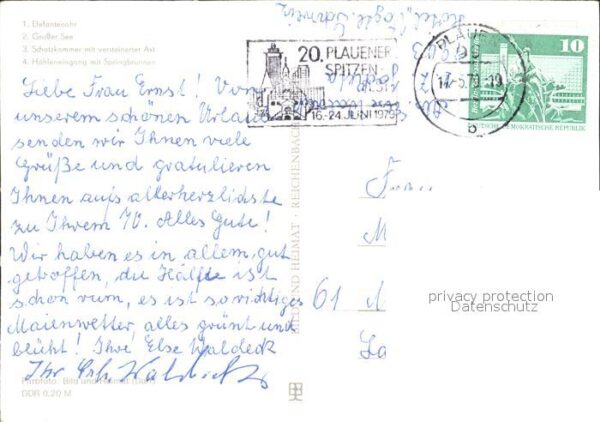 1. Elefantenohr
2. Großer See
3. Schatzkammer mit versteinerter Ast
4. Höhleneingang mit Springbrunnen
Liebe Frau Ernst! Von
unserem schönen Urlaub
senden wir Ihnen viele
Grüße und gratulieren
Ihnen aufs allerherzlichste
zu Ihrem 70. Alles Gute!
Wir haben es in allem gut
getroffen, die Hälfte ist
schon rum, es ist so richtiges
Maienwetter, alles grünt und
blüht! Ihre Else Waldeck
Ihr
Farbfoto: Bild und Heimat
DDR 0,20 M
BILD UND HEIMAT · REICHENBACH
20. PLAUENER
SPITZEN
FEST
16.-24. JUNI 1979
PLAUEN
-5.79-19
b
10
DEUTSCHE DEMOKRATISCHE REPUBLIK
Frau
M
61
privacy protection
Datenschutz